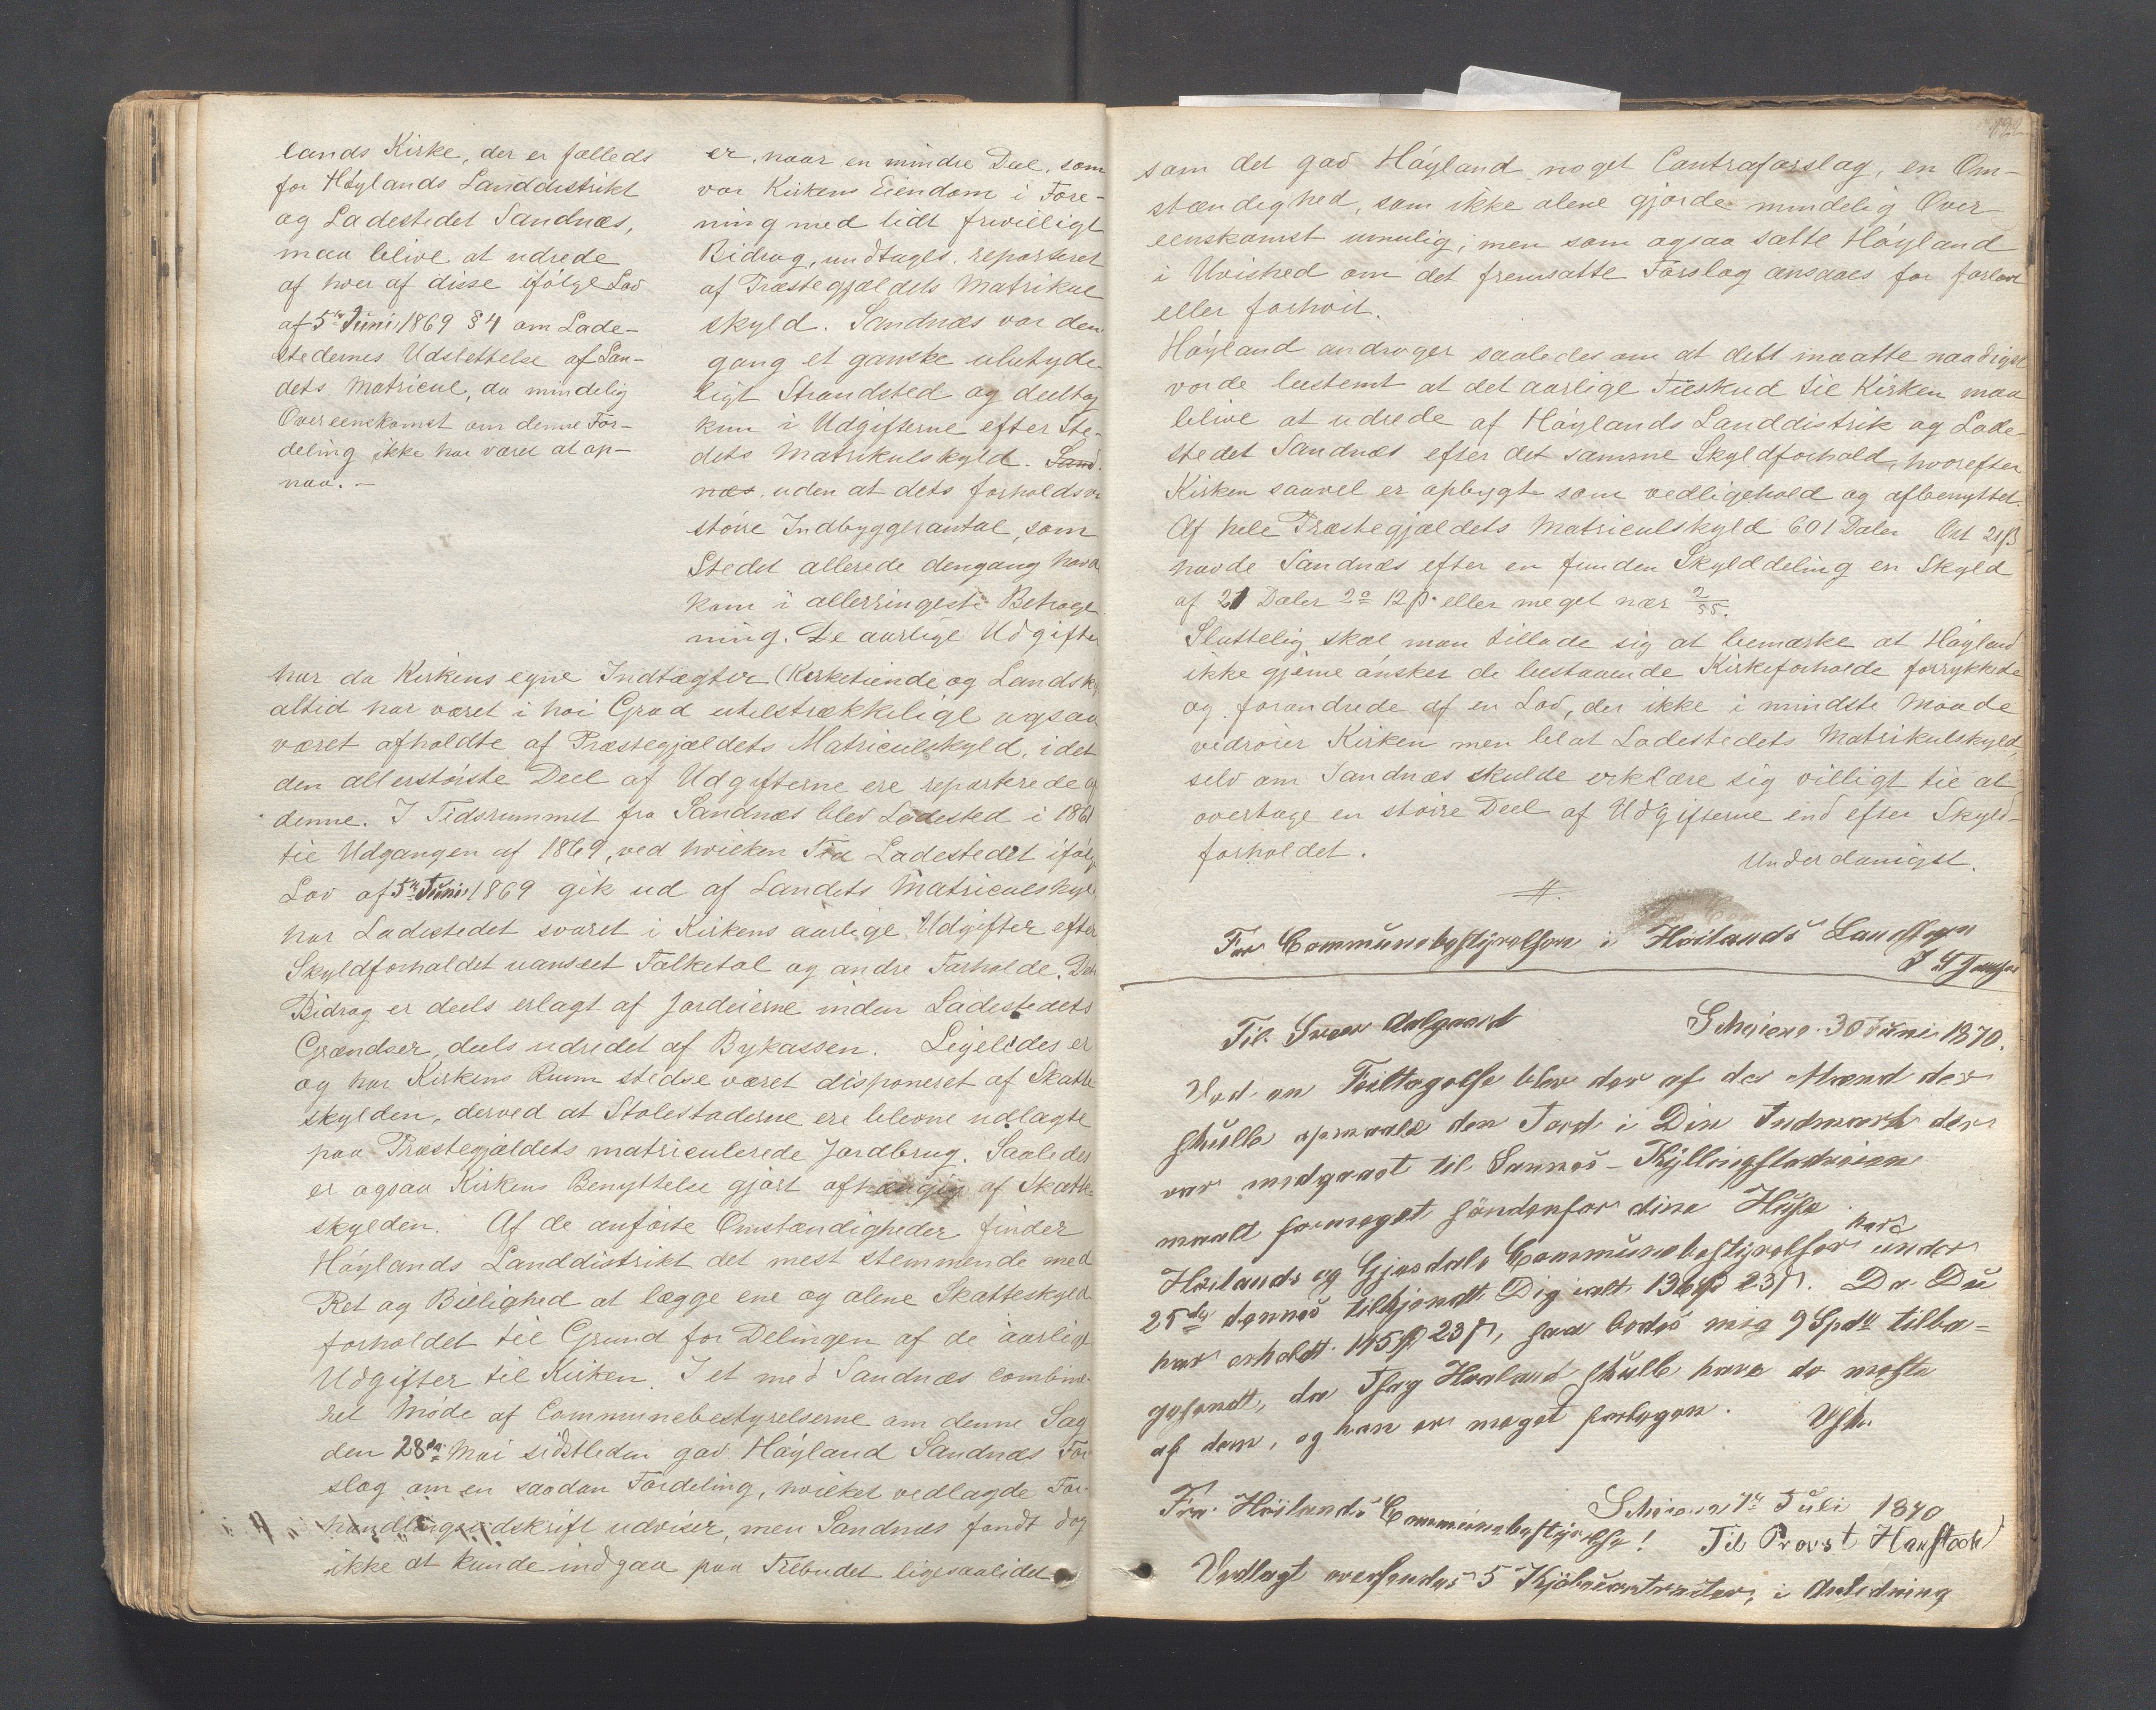 lands Kirke, der er fælleds
for Høylands Landdistrikt
og Ladestedet Sandnæs,
maa blive at udrede
af hver af disse ifølge Lov
af 5te Juni 1869 § 4 om Lade-
stedernes Udslettelse af Lan-
dets Matricul, da mindelig
Overeenskomst om denne For-
deling ikke har været at op-
naa. -
er, naar en mindre Deel, som
var Kirkens Eiendom i Fore-
ning med lidt frivilligt
Bidrag, undtages, reparteret
af Præstegjældets Matrikul
skyld. Sandnæs var den
gang et ganske ubetyde-
ligt Strandsted og deeltog
kun i Udgifterne efter Ste-
dets Matrikulskyld. Sand
næs, uden at dets forholdsvi
større Indbyggerantal, som
Stedet allerede dengang havd
kom i allerringeste Betragt
ning. De aarlige Udgifter
har da Kirkens egne Indtægter (Kirketiende og Landsky
altid har været i høi Grad utilstrækkeligt ogsaa
været afholdte af Præstegjældets Matriculskyld, idet
den allerstørste Deel af Udgifterne ere reparterede af
denne. I Tidsrummet fra Sandnæs blev Ladested i 1861
til Udgangen af 1869, ved hvilken Tid Ladestedet ifølg
Lov af 5te Juni 1869 gik ud af Landets Matriculskyl
har Ladestedet svaret i Kirkens aarlige Udgifter efter
Skyldforholdet uanseet Folketal og andre Forholde. Det
Bidrag er deels erlagt af Jordeierne inden Ladestedets
Grændser, deels udredet af Bykassen. Ligeledes er
og har Kirkens Rum stedse været disponeret af Skatte
skylden, derved at Stolestaderne ere blevne udlagte
paa Præstegjældets matriculerede Jordbrug. Saaledes
er ogsaa Kirkens Benyttelse gjort afhængig af Skatte-
skylden. Af de anførte Omstændigheder finder
Høylands Landdistrikt det mest stemmende med
Ret og Billighed at lægge ene og alene Skatteskyld
forholdet til Grund for Delingen af de aarlige
Udgifter til Kirken. I et med Sandnæs combine-
ret Møde af Communebestyrelserne om denne Sag
den 28de Mai sidstleden gav Høyland Sandnæs For
slag om en saadan Fordeling, hvilket vedlagde For-
handlingsudskrift udviser, men Sandnæs fandt dog
ikke at kunde indgaa paa Tilbudet ligesaalidet
122
som det gav Høyland noget Contraforslag, en Om-
stændighed, som ikke alene gjorde mindelig Over
eenskomst umulig; men som ogsaa satte Høyland
i Uvished om det fremsatte Forslag ansaaes for forlavt
eller forhøit.
Høyland andrager saaledes om at dett maatte naadigst
vorde bestemt at det aarlige Tilskud til Kirken maa
blive at udrede af Høylands Landdistrik og Lade-
stedet Sandnæs efter det samme Skyldforhold, hvorefter
Kirken saavel er opbygt som vedligehold og afbenyttet.
Af hele Præstegjældets Matriculskyld 601 Daler Ort 21 ß
havde Sandnæs efter en funden Skylddeling en Skyld
af 21 Daler 2o 12 ß eller meget nær 2/55.
Sluttelig skal man tillade sig at bemærke at Høyland
ikke gjerne ønsker de bestaaende Kirkeforholde forrykkede
og forandrede af en Lov, der ikke i mindste Maade
vedrører Kirken men blot Ladestedets Matrikulskyld,
selv om Sandnæs skulde erklære sig villigt til at
overtage en større Deel af Udgifterne end efter Skyld-
forholdet.
Underdanigst.
For Communebestyrelsen i Høilands Landsogn
Til Sveen Aalgaard
Scheiene 30 Juni 1870.
Ved en Feiltagelse blev der af de Mænd der
skulle opmaale den Jord i Din Indmark der
var medgaaet til Sannes - Kyllingstadveien
maalt formeget søndenfor dine Huse.
Høilands og Gjesdals Communebestyrelser har under
25de dennes tilkjendt Dig ialt 136 Spd 23 ß. Da Du
har erholdt 145 Spd 23 ß, saa bedes mig 9 Spdlr tilba-
gesendt, da Haaland skulle have de meste
af dem, og han er meget forlegen.
Vsk.
Scheiene 7de Juli 1870
Fra Høilands Communebestyrelse! Til Provst
Vedlagt oversendes 5 Kjøbecontracter, i Anledning